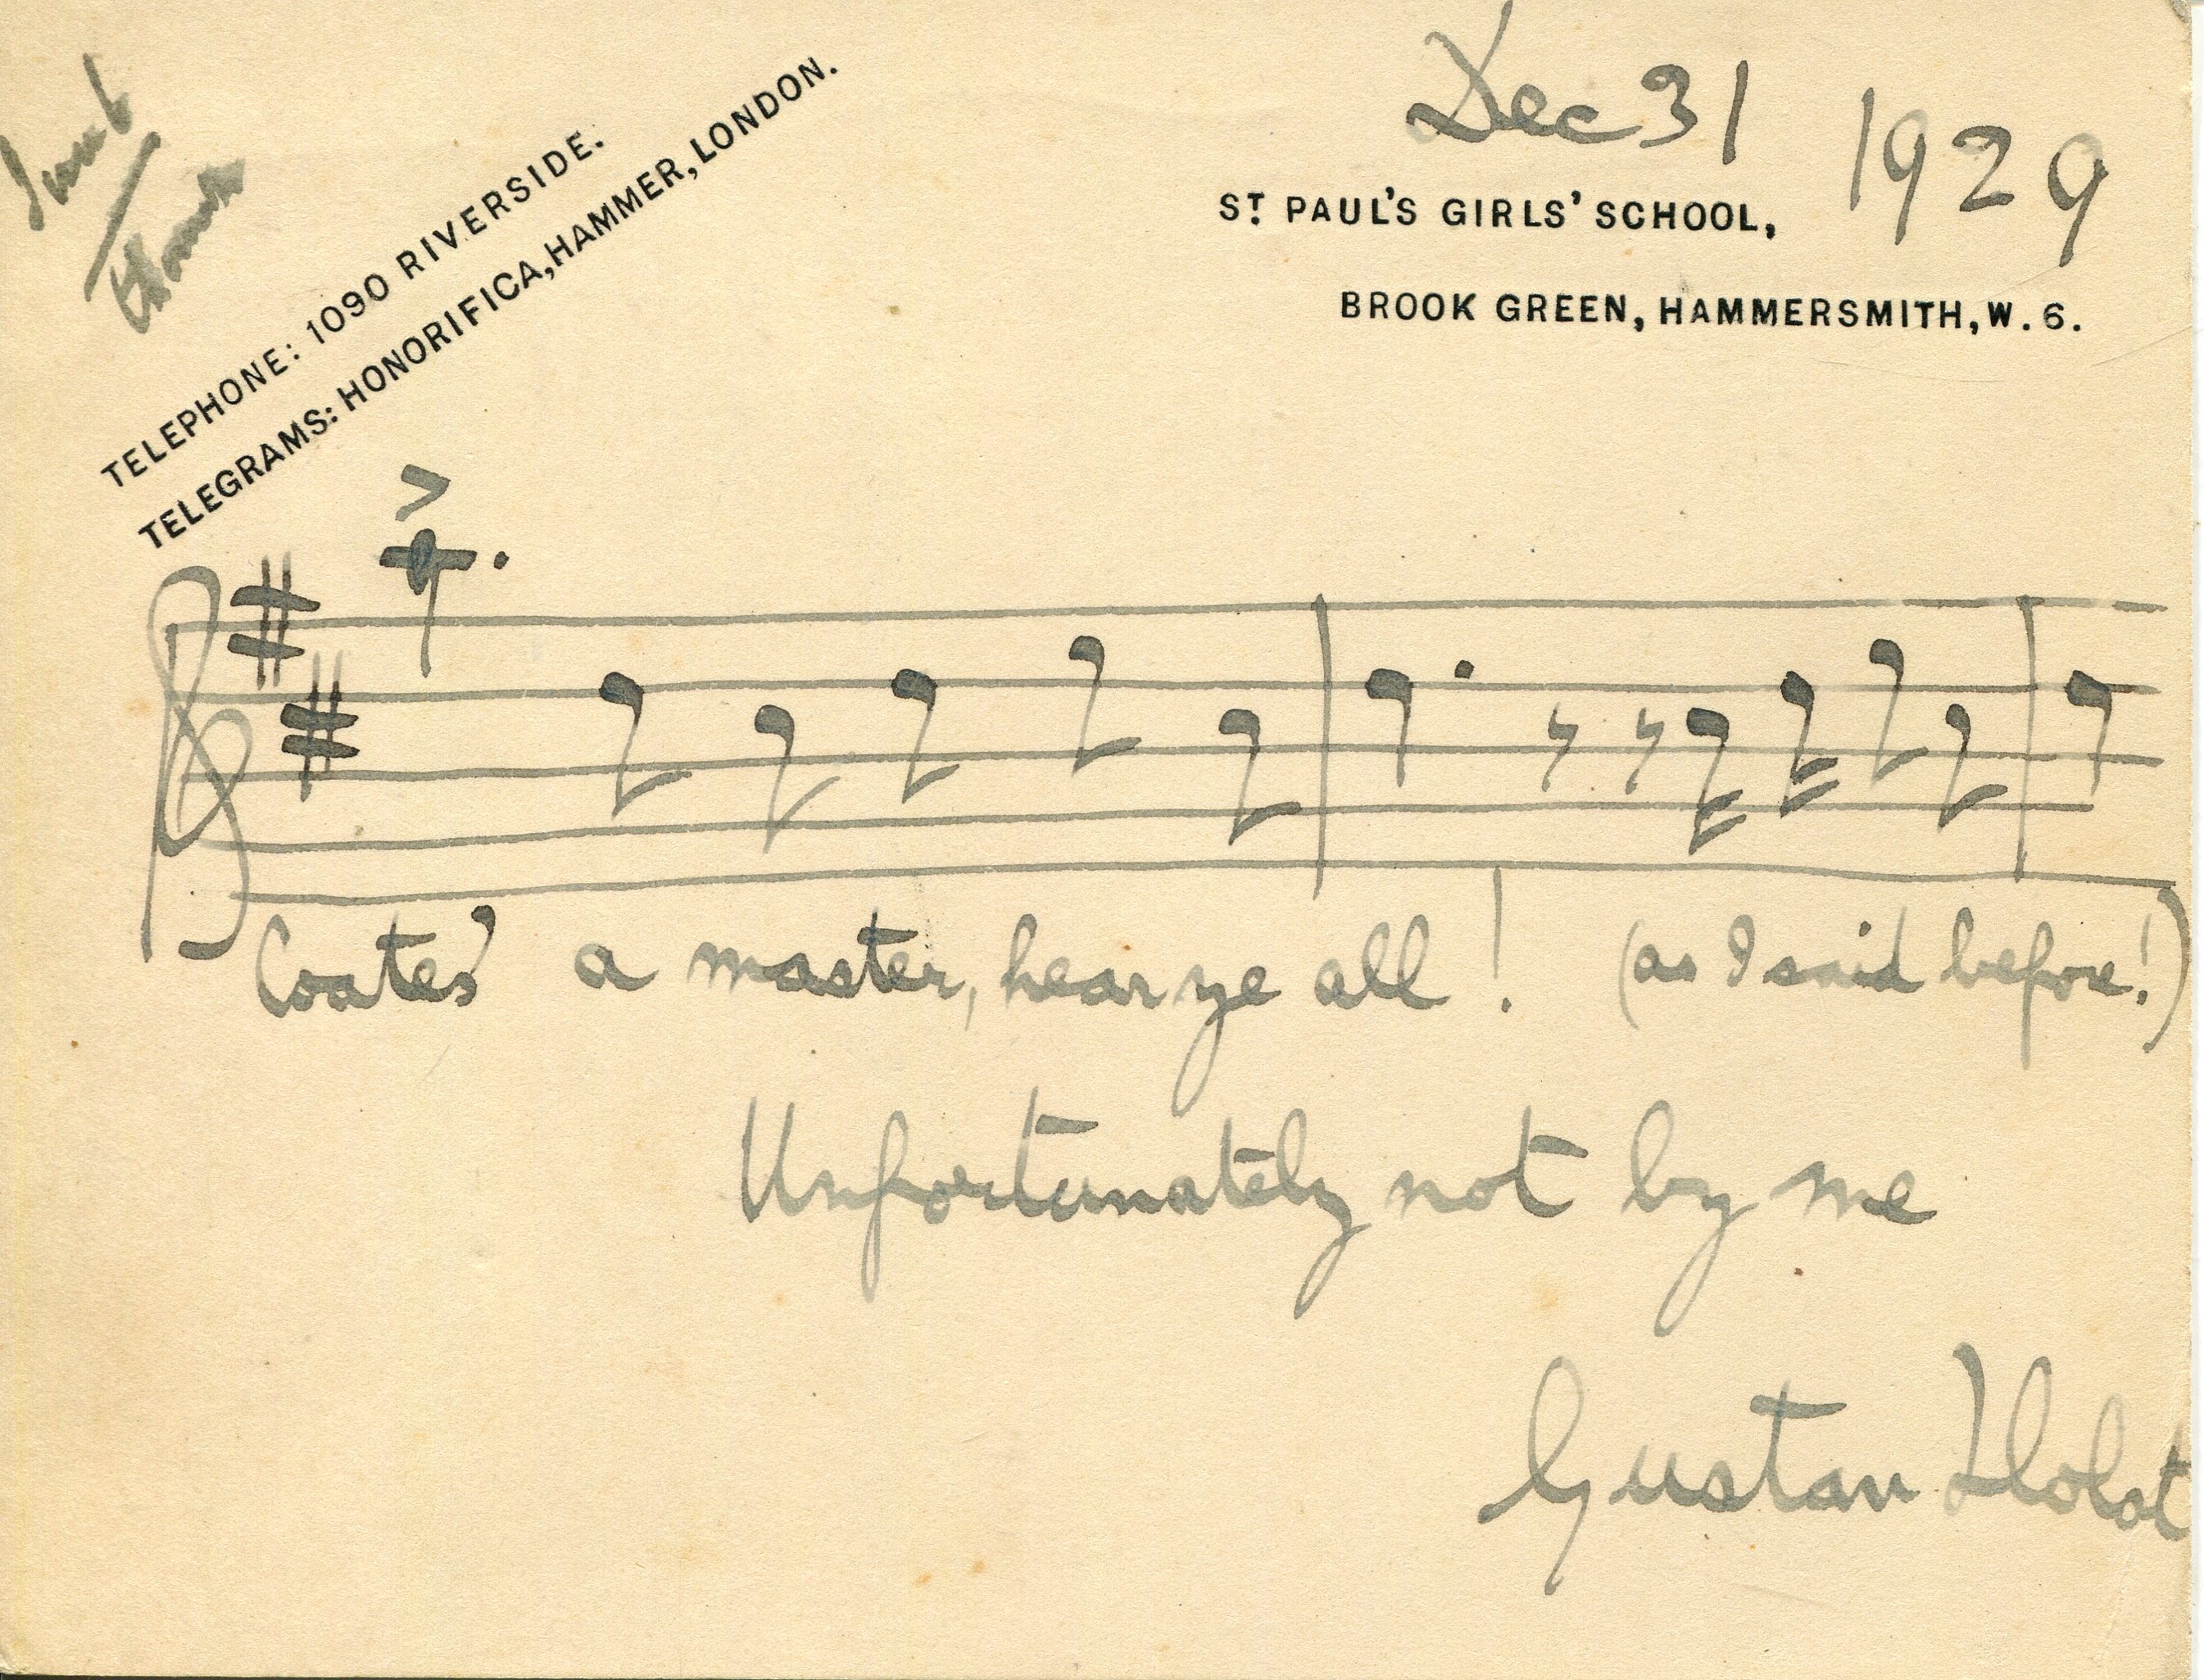 Dec 31 1929
TELEPHONE: 1090 RIVERSIDE.
TELEGRAMS: HONORIFICA, HAMMER, LONDON.
ST PAUL'S GIRLS' SCHOOL,
BROOK GREEN, HAMMERSMITH, W. 6.
Coates' a master, hear ye all! (as I said before!)
Unfortunately not by me
Gustav Holst